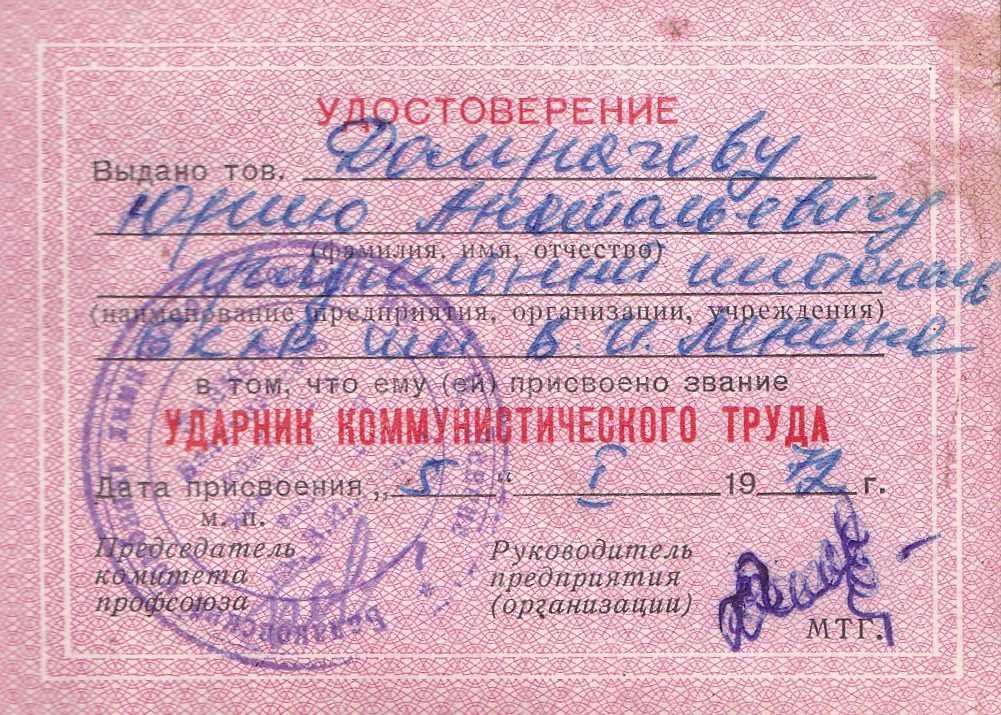 УДОСТОВЕРЕНИЕ
Выдано тов. Домрачеву
Юрию Анатольевичу
(фамилия, имя, отчество)
(наименование предприятия, организации, учреждения)
им. В. И. Ленина
в том, что ему (ей) присвоено звание
УДАРНИК КОММУНИСТИЧЕСКОГО ТРУДА
Дата присвоения „5“ I 1972 г.
м. п.
Председатель
комитета
профсоюза
Руководитель
предприятия
(организации)
МТГ.